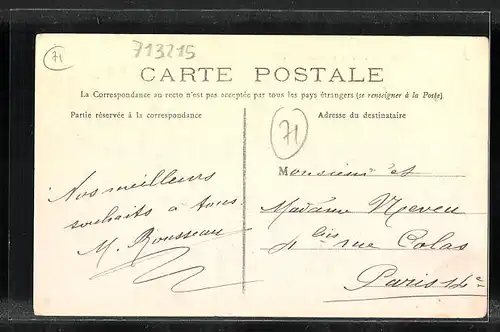 71
713215
CARTE POSTALE
La Correspondance au recto n'est pas acceptée par tous les pays étrangers (se renseigner à la Poste).
Partie réservée à la correspondance
Adresse du destinataire
71
Nos meilleurs
souhaits à tous.
M. Rousseau
Monsieur et
Madame Neveu
4 bis rue Colas
Paris 14e